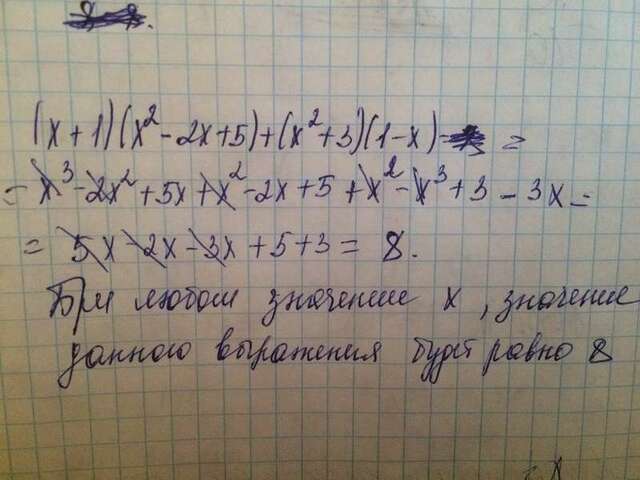 (x+1)(x²-2x+5)+(x²+3)(1-x)=
=x³-2x²+5x+x²-2x+5+x²-x³+3-3x=
=5x-2x-3x+5+3=8.
При любом значение x, значение
данного выражения будет равно 8